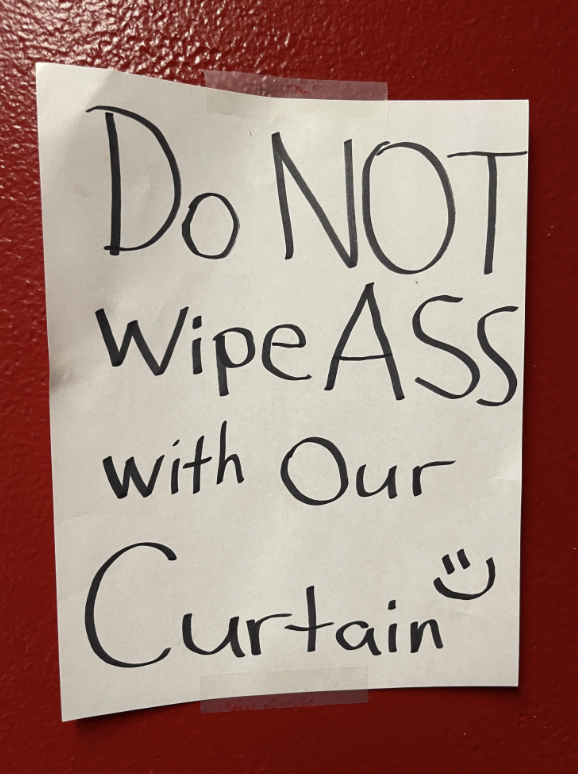 Do NOT
Wipe ASS
with Our
Curtain